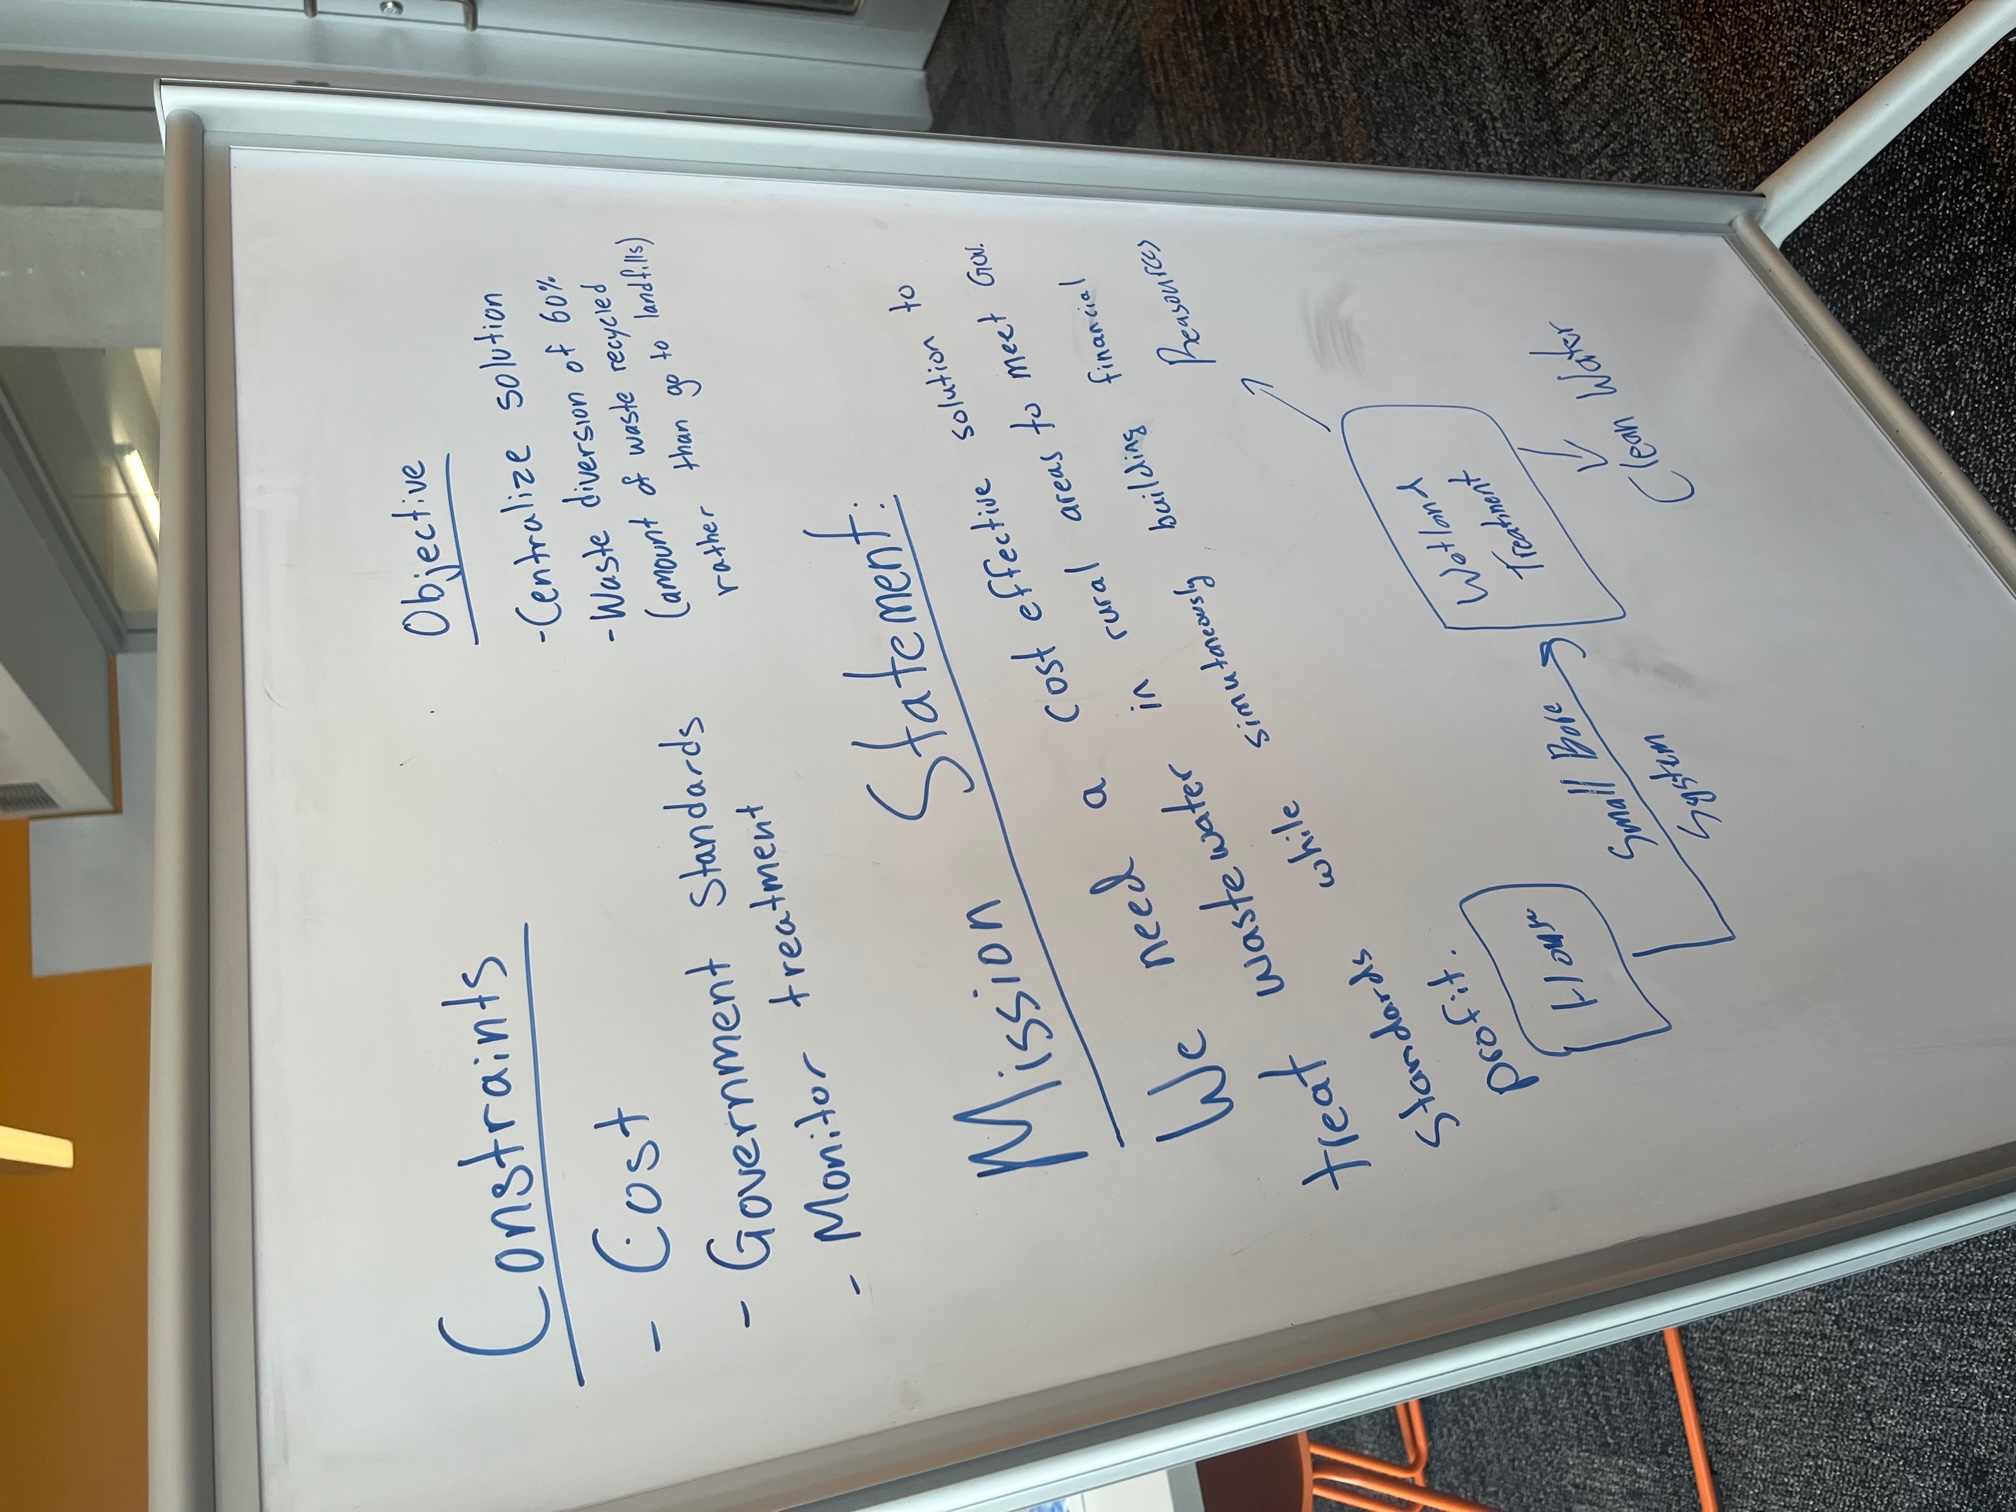 Constraints
- Cost
- Government standards
- Monitor treatment
Objective
- Centralize solution
- Waste diversion of 60%
(amount of waste recycled
rather than go to landfills)
Mission Statement:
We need a cost effective solution to
treat wastewater in rural areas to meet Gov.
Standards while simutaneously building financial
profit.
House
Small Bore
System
Wetland
Treatment
Reasources
Clean Water